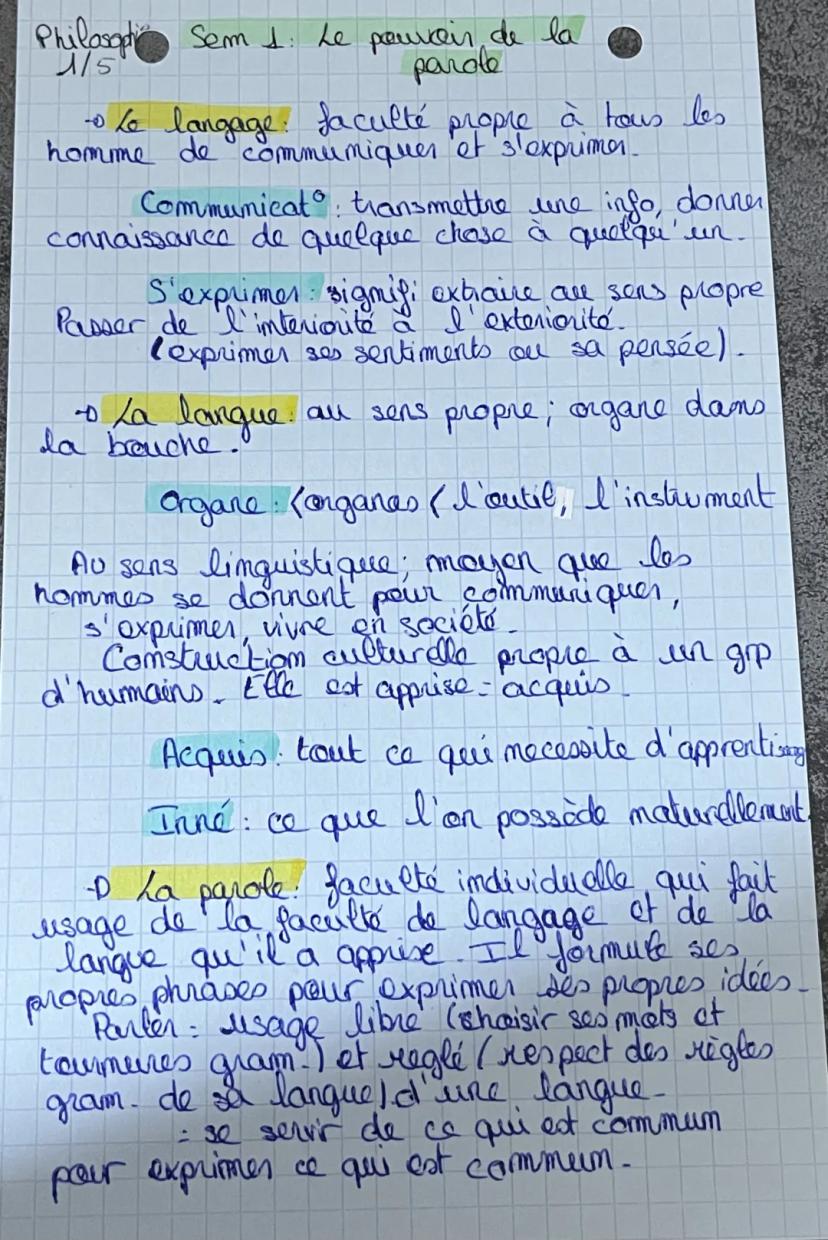 Philosophie Sem 1: Le pouvoir de la
1/5 parole
→ Le langage: faculté propre à tous les
homme de communiquer et s'exprimer.
Communicat°: transmettre une info, donner
connaissance de quelque chose à quelqu'un.
S'exprimer: signifi extraire au sens propre
Passer de l'interiorité à l'exteriorité.
(exprimer ses sentiments ou sa pensée).
→ La langue: au sens propre; organe dans
la bouche.
Organe: (organas ( l'outil, l'instrument
Au sens linguistique; moyen que les
hommes se donnent pour communiquer,
s'exprimer, vivre en société.
Construction culturelle propre à un grp
d'humains. Elle est apprise = acquis.
Acquis: tout ce qui necessite d'apprentissag
Inné: ce que l'on possède naturellement.
→ La parole: faculté individuelle qui fait
usage de la faculté de langage et de la
langue qu'il a apprise. Il formule ses
propres phrases pour exprimer ses propres idées.
Parler = usage libre (choisir ses mots et
tournures gram.) et reglé (respect des règles
gram. de sa langue) d'une langue.
= se servir de ce qui est commun
pour exprimer ce qui est commun.